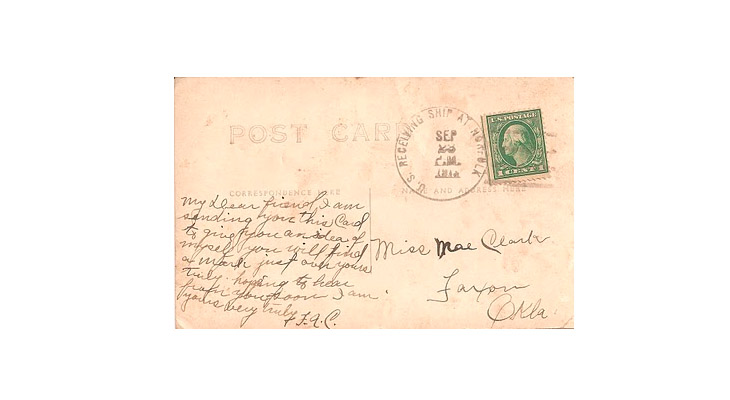 POST CARD
CORRESPONDENCE HERE
NAME AND ADDRESS HERE
U.S. RECEIVING SHIP AT NORFOLK
SEP
P.M.
U.S. POSTAGE
1 CENT 1
My Dear friend, I am
sending you this Card
to give you an idea of
myself you will find
a mark just over yours
truly. hoping to hear
from you soon I am
yours very truly
F.A.C.
Miss Mae Clark
Faxon
Okla.